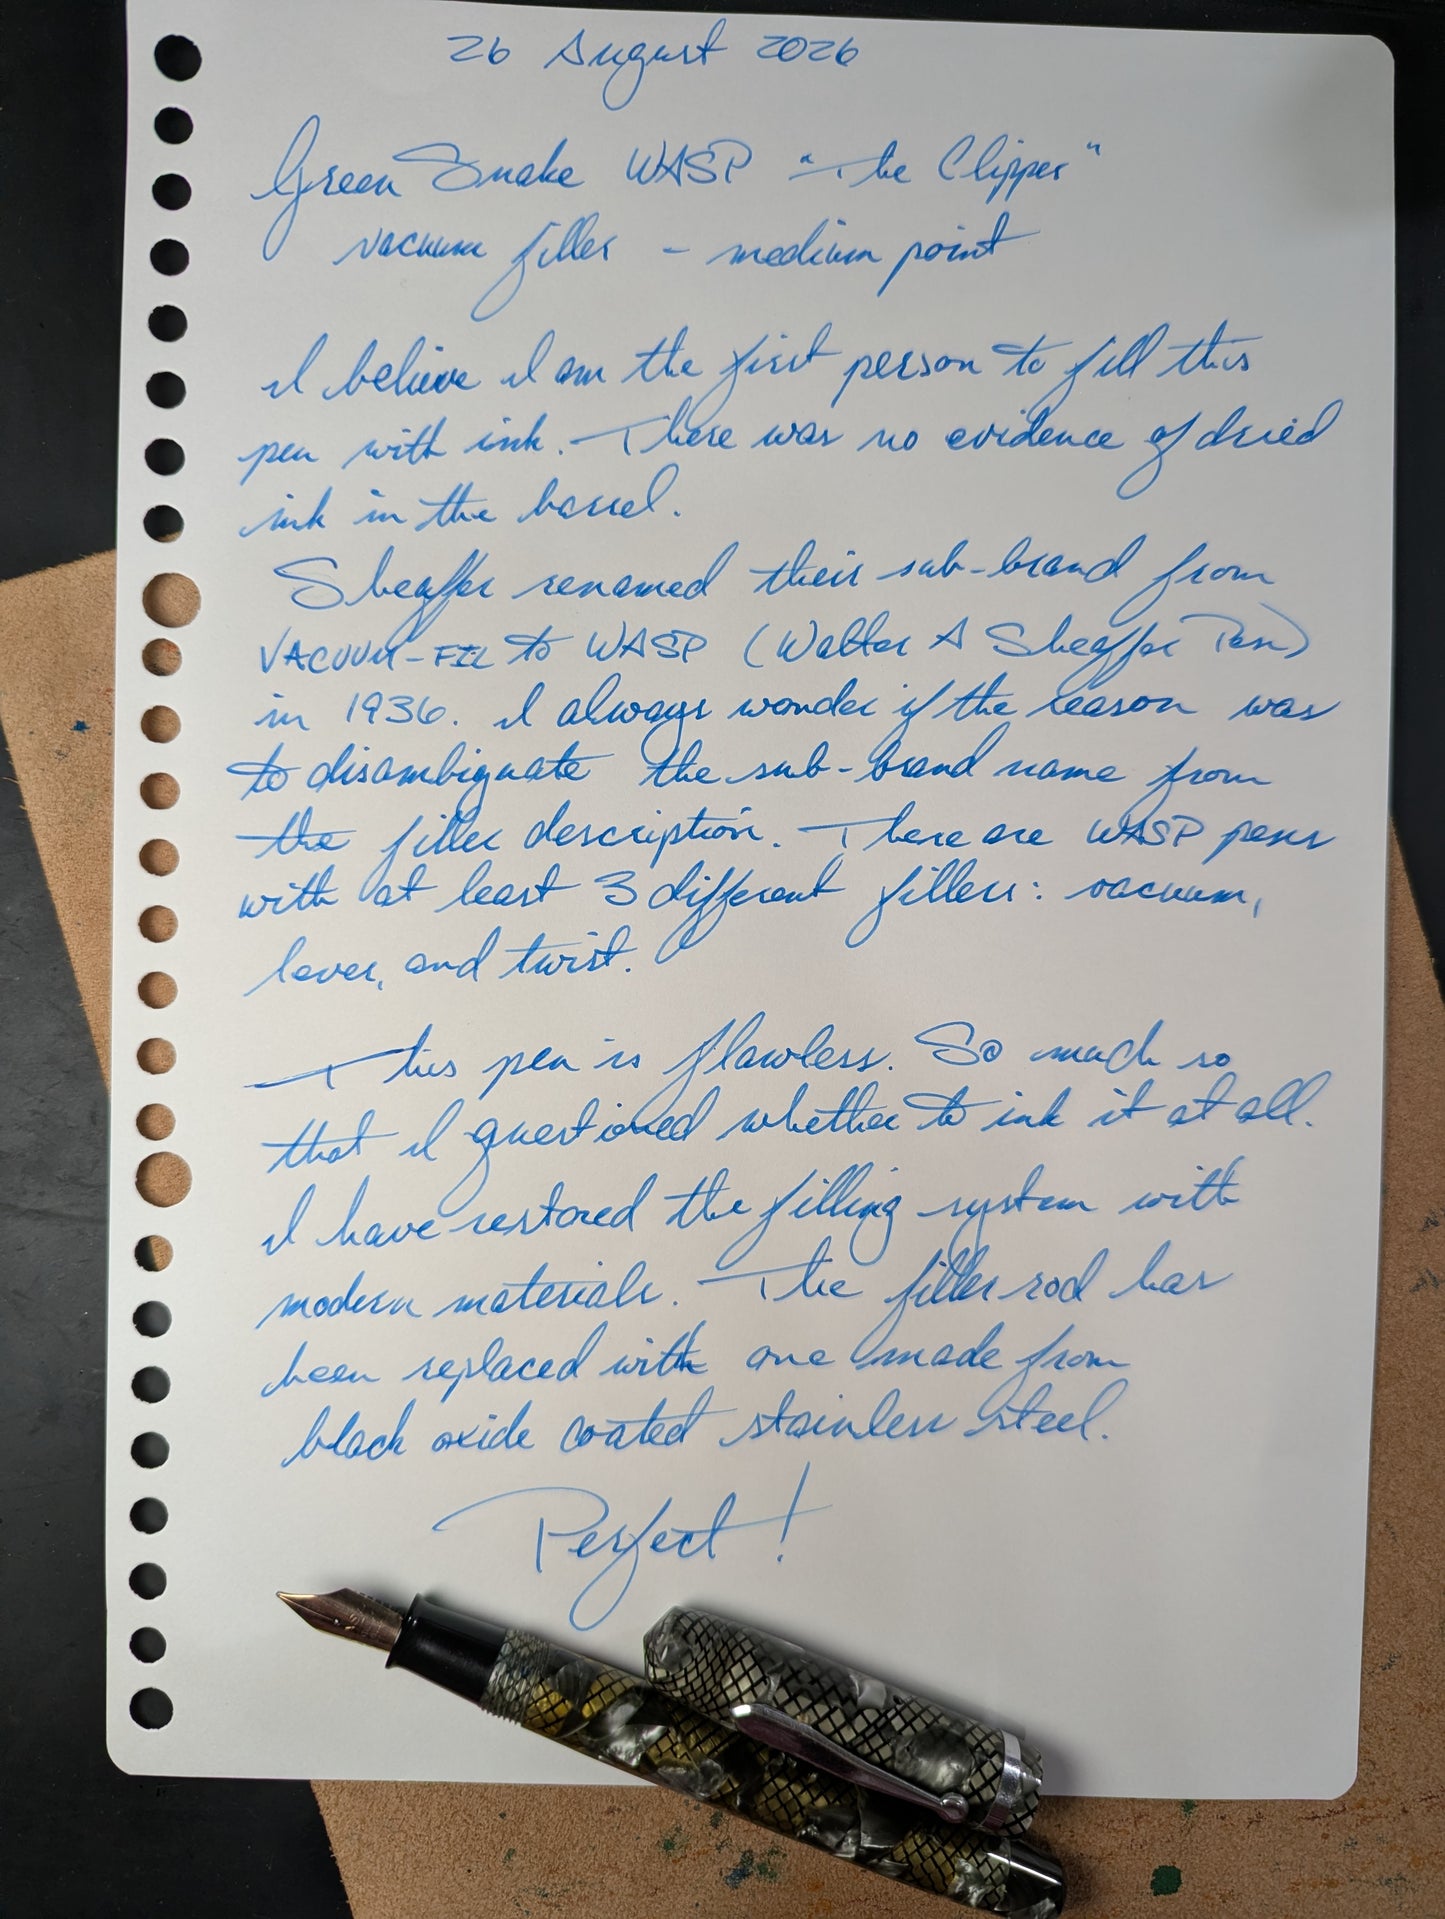 26 August 2026
Green Snake WASP "The Clipper"
vacuum filler - medium point
I believe I am the first person to fill this
pen with ink. There was no evidence of dried
ink in the barrel.
Sheaffer renamed their sub-brand from
VACUUM-FIL to WASP (Walter A Sheaffer Pen)
in 1936. I always wonder if the reason was
to disambiguate the sub-brand name from
the filler description. There are WASP pens
with at least 3 different fillers: vacuum,
lever, and twist.
This pen is flawless. So much so
that I questioned whether to ink it at all.
I have restored the filling system with
modern materials. The filler rod has
been replaced with one made from
black oxide coated stainless steel.
Perfect!